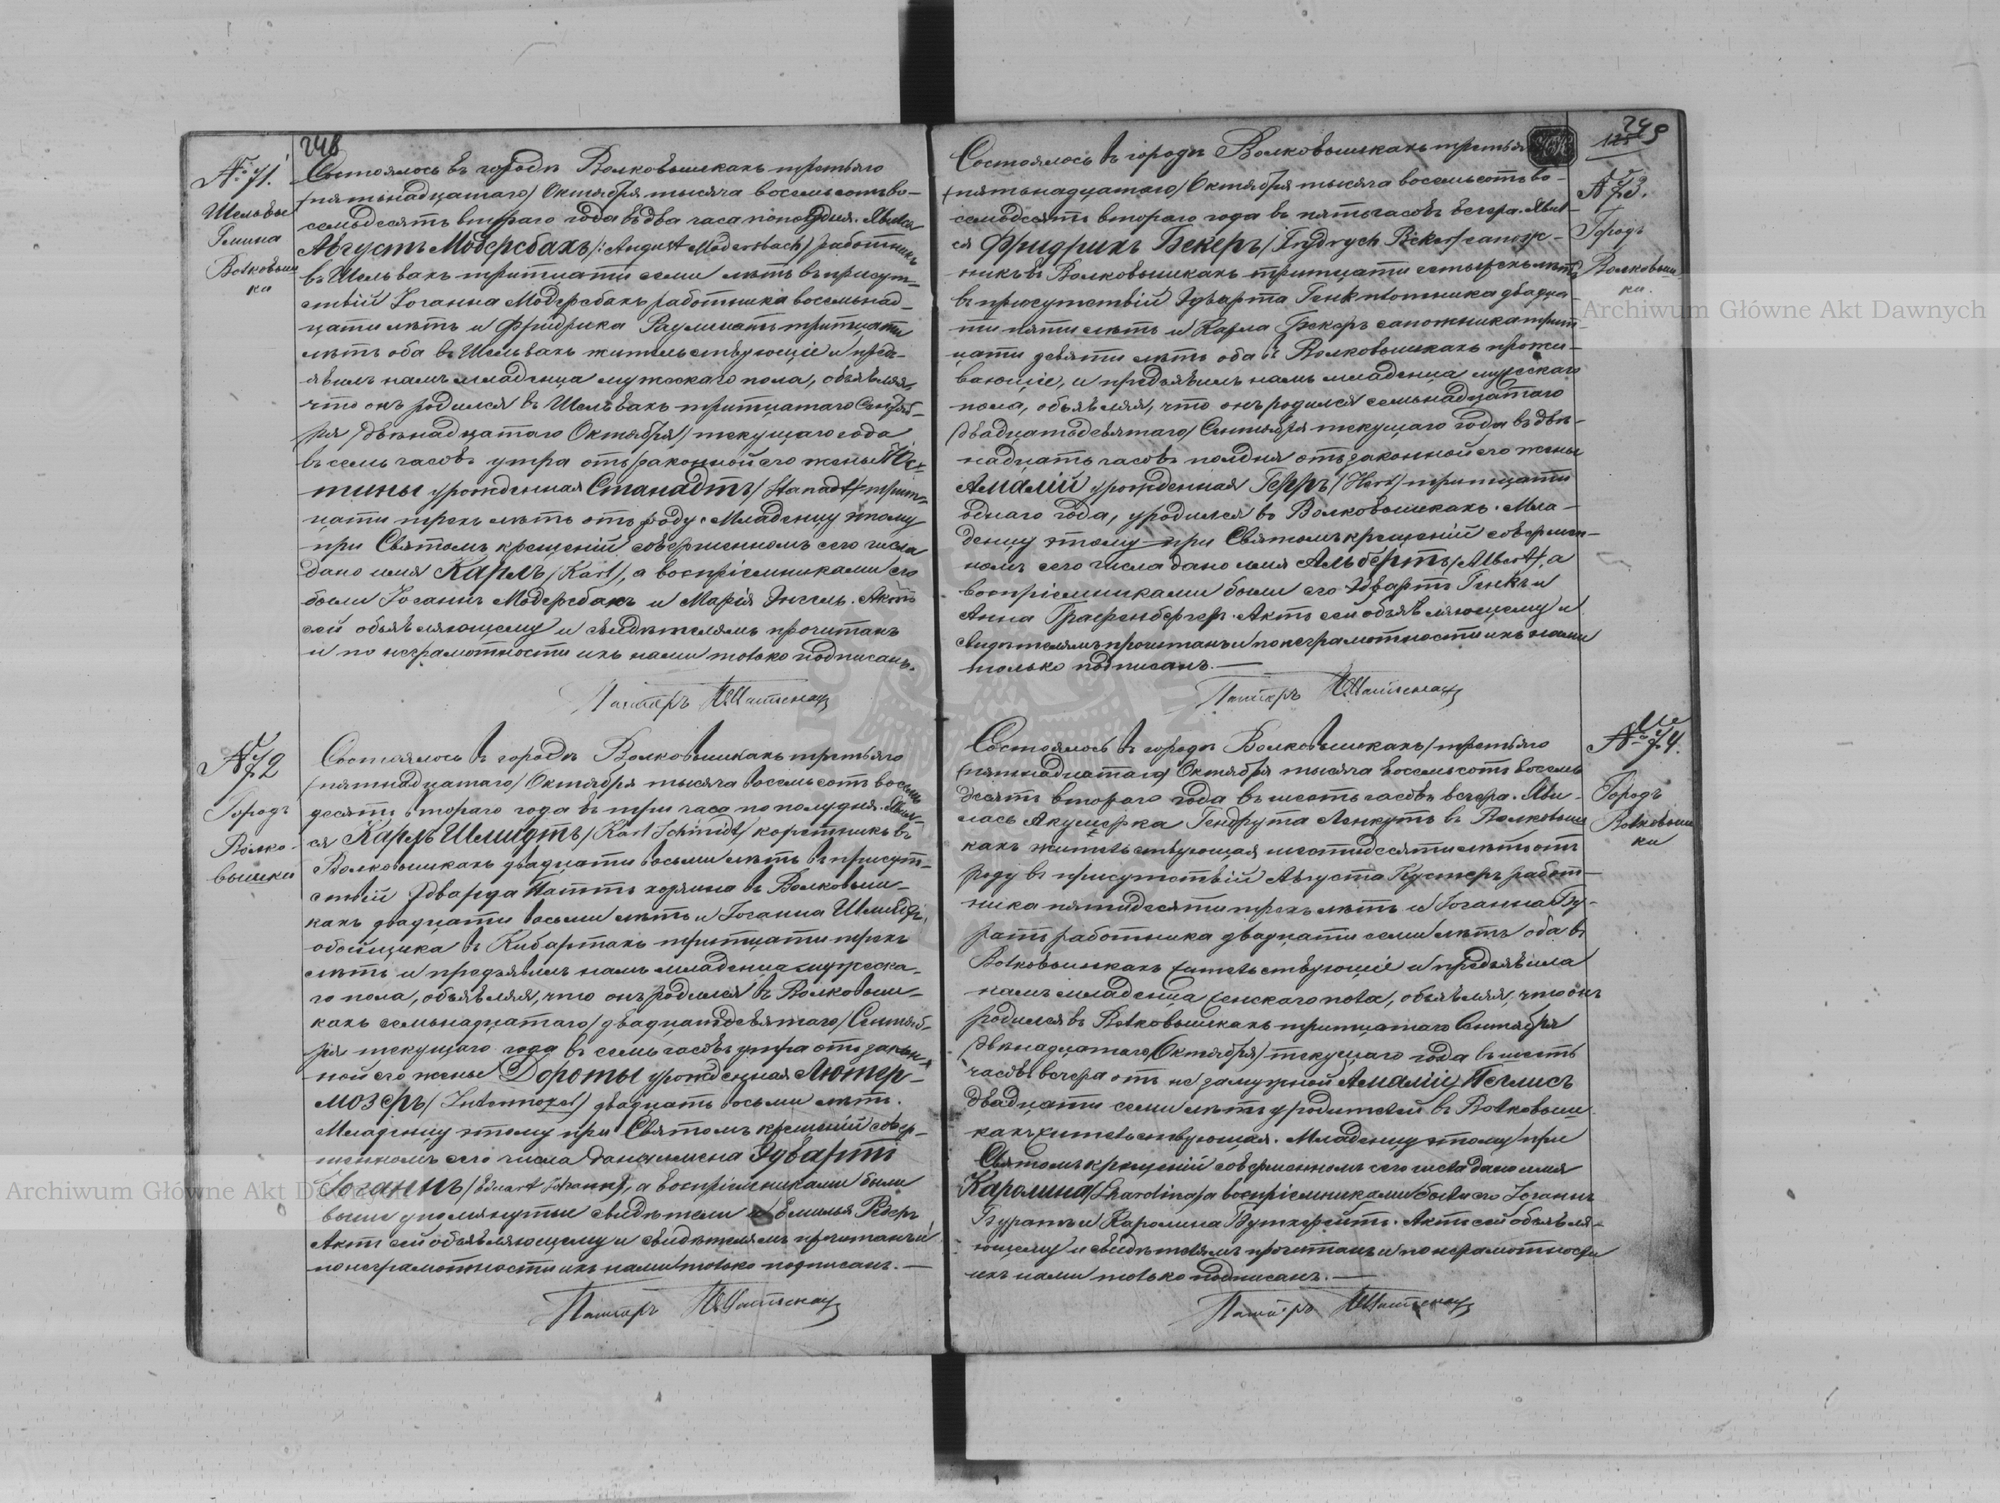 248
№ 71.
Шельвы
Гмина
Волковыш
ки
Состоялось въ городѣ Волковышкахъ третьяго
/пятьнадцатаго/ Октября тысяча восемьсотъ во-
семьдесятъ втораго года въ два часа пополудня. Явился
Августъ Модерсбахъ /:August Modersbach/ работникъ
въ Шельвахъ тритцати семи лѣтъ въ присут-
ствіи Іоганна Модерсбахъ работника восемьнад-
цати лѣтъ и Фридриха тритцати
лѣтъ оба въ Шельвахъ жительствующіе и предъ-
явилъ намъ младенца мужескаго пола, объявляя,
что онъ родился въ Шельвахъ тритцатаго Сентяб-
ря /двѣнадцатаго Октября/ текущаго года
въ семь часовъ утра отъ законной его жены Юс-
тины урожденная Станадтъ /Stanadt/ трит-
цати трехъ лѣтъ отъ роду. Младенцу этому
при Святомъ крещеніи совершенномъ сего числа
дано имя Карлъ /Karl/, а воспріемниками его
были Іоганнъ Модерсбахъ и Марія Энгель. Актъ
сей объявляющему и свидѣтелямъ прочитанъ
и по неграмотности ихъ нами только подписанъ.
Пасторъ
№ 72
Городъ
Волко-
вышки
Состоялось въ городѣ Волковышкахъ третьяго
/пятнадцатаго/ Октября тысяча восемьсотъ восемь
десятъ втораго года въ три часа по полудня. Явил-
ся Карлъ Шмидтъ /Karl Schmidt/ коретникъ въ
Волковышкахъ двадцати восьми лѣтъ въ присут-
ствіи Эдварда хозяина въ Волковыш-
кахъ двадцати восьми лѣтъ и Іоганна Шмидтъ
обойщика въ Кибартахъ тритцати трехъ
лѣтъ и предъявилъ намъ младенца мужеска-
го пола, объявляя, что онъ родился въ Волковыш-
кахъ семьнадцатаго /двадцатдевятаго/ Сентяб-
ря текущаго года въ семь часовъ утра отъ закон-
ной его жены Дороты урожденная Лютер-
мозеръ /Lutermozer/ двадцать восьми лѣтъ.
Младенцу этому при Святомъ крещеніи совер-
шенномъ сего числа дано имена Эдвартъ
Іоганнъ /Eduart Johann/, а воспріемниками были
выше упомянутые свидѣтели и Емилья
Актъ сей объявляющему и свидѣтелямъ прочитанъ и
по неграмотности ихъ нами только подписанъ. —
Пасторъ
249
125
№ 73.
Городъ
Волковыш-
ки.
Состоялось въ городѣ Волковышкахъ третьяго
/пятьнадцатаго/ Октября тысяча восемьсотъ во-
семьдесятъ втораго года въ пять часовъ вечера. Явил-
ся Фридрихъ Бекеръ /Frydrych Beker/ сапож-
никъ въ Волковышкахъ тритцати четырехъ лѣтъ
въ присутствіи Эдварта Генкъ плотника двадца-
ти пяти лѣтъ и Карла Бекеръ сапожника трит-
цати девяти лѣтъ оба въ Волковышкахъ прожи-
вающіе, и предъявилъ намъ младенца мужескаго
пола, объявляя, что онъ родился семьнадцатаго
/двадцатьдевятаго/ Сентября текущаго года въ двѣ-
надцать часовъ полдня отъ законной его жены
Амаліи урожденная Герръ /Herr/ тритцати
одного года, уродился въ Волковышкахъ. Мла-
денцу этому при Святомъ крещеніи совершен-
номъ сего числа дано имя Альбертъ /Albert/, а
воспріемниками были его Эдвартъ Генкъ и
Анна Графенбергеръ. Актъ сей объявляющему и
свидѣтелямъ прочитанъ и по неграмотности ихъ нами
только подписанъ. —
Пасторъ
№ 74.
Городъ
Волковыш
ки
Состоялось въ городѣ Волковышкахъ /третьяго
/пятнадцатаго/ Октября тысяча восемьсотъ восемь
десятъ втораго года въ шесть часовъ вечера. Яви-
лась Акушерка Гендрута Ленкутъ въ Волковыш
кахъ жительствующая шестидесяти лѣтъ отъ
роду въ присутствіи Августа Кустеръ работ-
ника пятидесяти трехъ лѣтъ и Іоганна Бу-
ратъ работника двадцати семи лѣтъ оба въ
Волковышкахъ жительствующіе и предъявила
намъ младенца женскаго пола, объявляя, что онъ
родился въ Волковышкахъ тритцатаго Сентября
/двѣнадцатаго Октября/ текущаго года въ шесть
часовъ вечера отъ не замужной Амаліи
двадцати семи лѣтъ у родителей въ Волковыш
кахъ жительствующая. Младенцу этому при
Святомъ крещеніи совершенномъ сего числа дано имя
Каролина /Karolina/ а воспріемниками были его Іоганнъ
Буратъ и Каролина. Актъ сей объявля-
ющему и свидѣтелямъ прочитанъ и по неграмотности
ихъ нами только подписанъ. —
Пасторъ
Archiwum Główne Akt Dawnych
Archiwum Główne Akt Dawnych